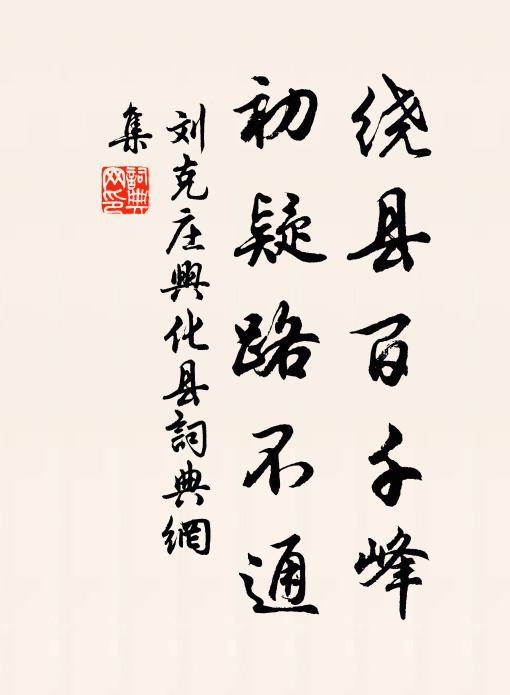 绕县百千峰
初疑路不通
刘克庄興化县詞典網
集
詞典網印